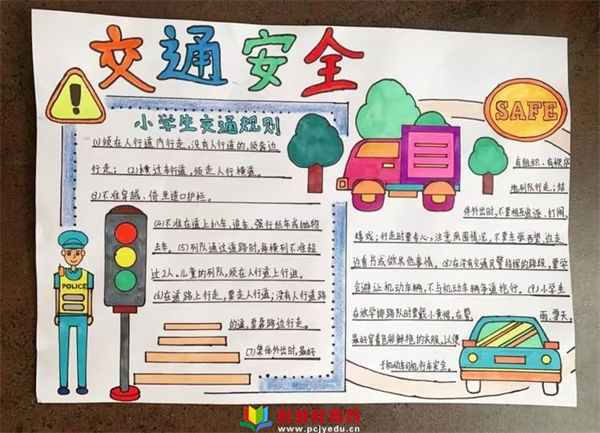 交通安全
小学生交通规则
(1)须在人行道内行走,没有人行道的,须靠边
行走; (2)横过车行道,须走人行横道。
(3)不准穿越、倚坐道口护栏。
(4)不准在道上扒车、追车、强行拦车或抛物
击车。(5)列队通过道路时,每横列不准超
过2人。儿童的列队,须在人行道上行进。
(6)在道路上行走,要走人行道;没有人行道路
的道,要靠路边行走。
(7)集体外出时,最好
POLICE
SAFE
有组织、有秩序
地列队行走;结
伴外出时,不要相互追逐、打闹、
嬉戏;行走时要专心,注意周围情况,不要东张西望、边走
边看书或做其他事情。(8)在没有交通民警指挥的路段,要学
会避让机动车辆,不与机动车辆争道抢行。(9)小学生
在放学排路队时要戴小黄帽,在雾、雨、雪天,
最好穿着色彩鲜艳的衣服,以便
于机动车司机行车安全。
彩虹教育网
www.pcjyedu.cn